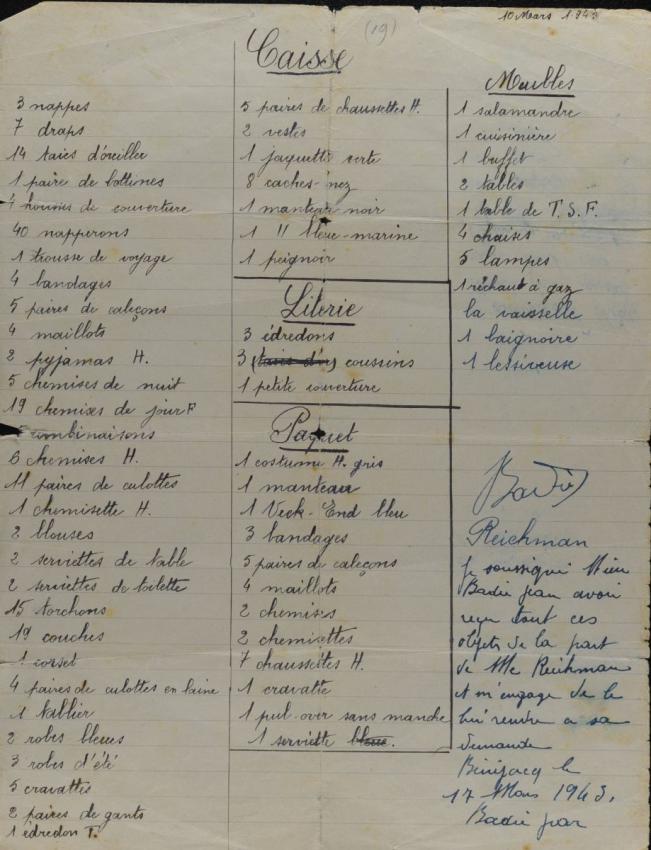 10 Mars 1.943
(19)
Caisse
3 nappes
7 draps
14 taies d'oreiller
1 paire de bottines
4 housses de couverture
40 napperons
1 trousse de voyage
4 bandages
5 paires de caleçons
4 maillots
2 pyjamas H.
5 chemises de nuit
19 chemises de jour F
combinaisons
6 chemises H.
11 paires de culottes
1 chemisette H.
2 blouses
2 serviettes de table
2 serviettes de toilette
15 torchons
19 couches
1 corset
4 paires de culottes en laine
1 tablier
2 robes bleues
3 robes d'été
5 cravattes
2 paires de gants
1 édredon T.
5 paires de chaussettes H.
2 vestes
1 jaquette verte
8 caches-nez
1 manteau noir
1 " bleu-marine
1 peignoir
Literie
3 édredons
3 (taies d'or) coussins
1 petite couverture
Paquet
1 costume H. gris
1 manteau
1 Veek-End bleu
3 bandages
5 paires de caleçons
4 maillots
2 chemises
2 chemisettes
7 chaussettes H.
1 cravatte
1 pul-over sans manche
1 serviette bleue.
Meubles
1 salamandre
1 cuisinière
1 buffet
2 tables
1 table de T.S.F.
4 chaises
5 lampes
1 réchaut à gaz
la vaisselle
1 baignoire
1 lessiveuse
Badié
Reichman
Je soussigné
Badié Jean avoir
reçu tout ces
objets de la part
de Mle Reichman
et m'engage de le
lui rendre a sa
demande
le
17 Mars 1943.
Badié